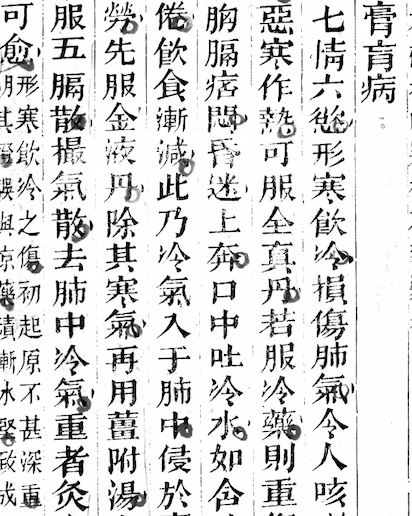 膏肓病
七情六慾形寒飲冷損傷肺氣令人咳
惡寒作熱可服全真丹若服冷藥則重
胸膈痞悶昏迷上奔口中吐冷水如含
倦飲食漸減此乃冷氣入于肺中侵於
勞先服金液丹除其寒氣再用薑附湯
服五膈散撮氣散去肺中冷氣重者灸
可愈形寒飲冷之傷初起原不甚深重
其誤與凉藥積漸冰堅致成